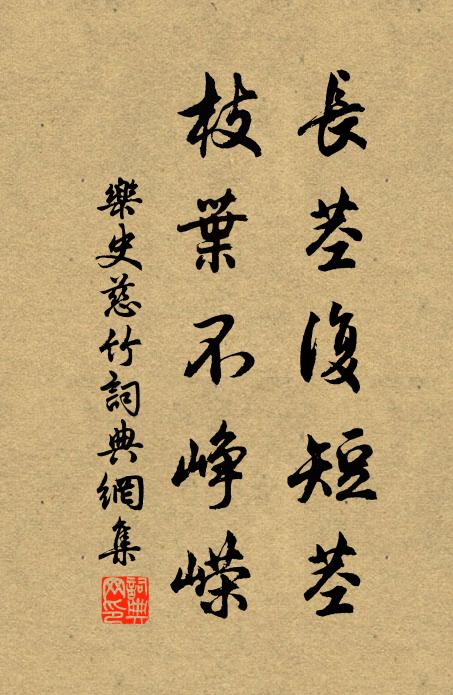 長莖復短莖
枝葉不峥嶸
樂史慈竹詞典網集
詞典網印